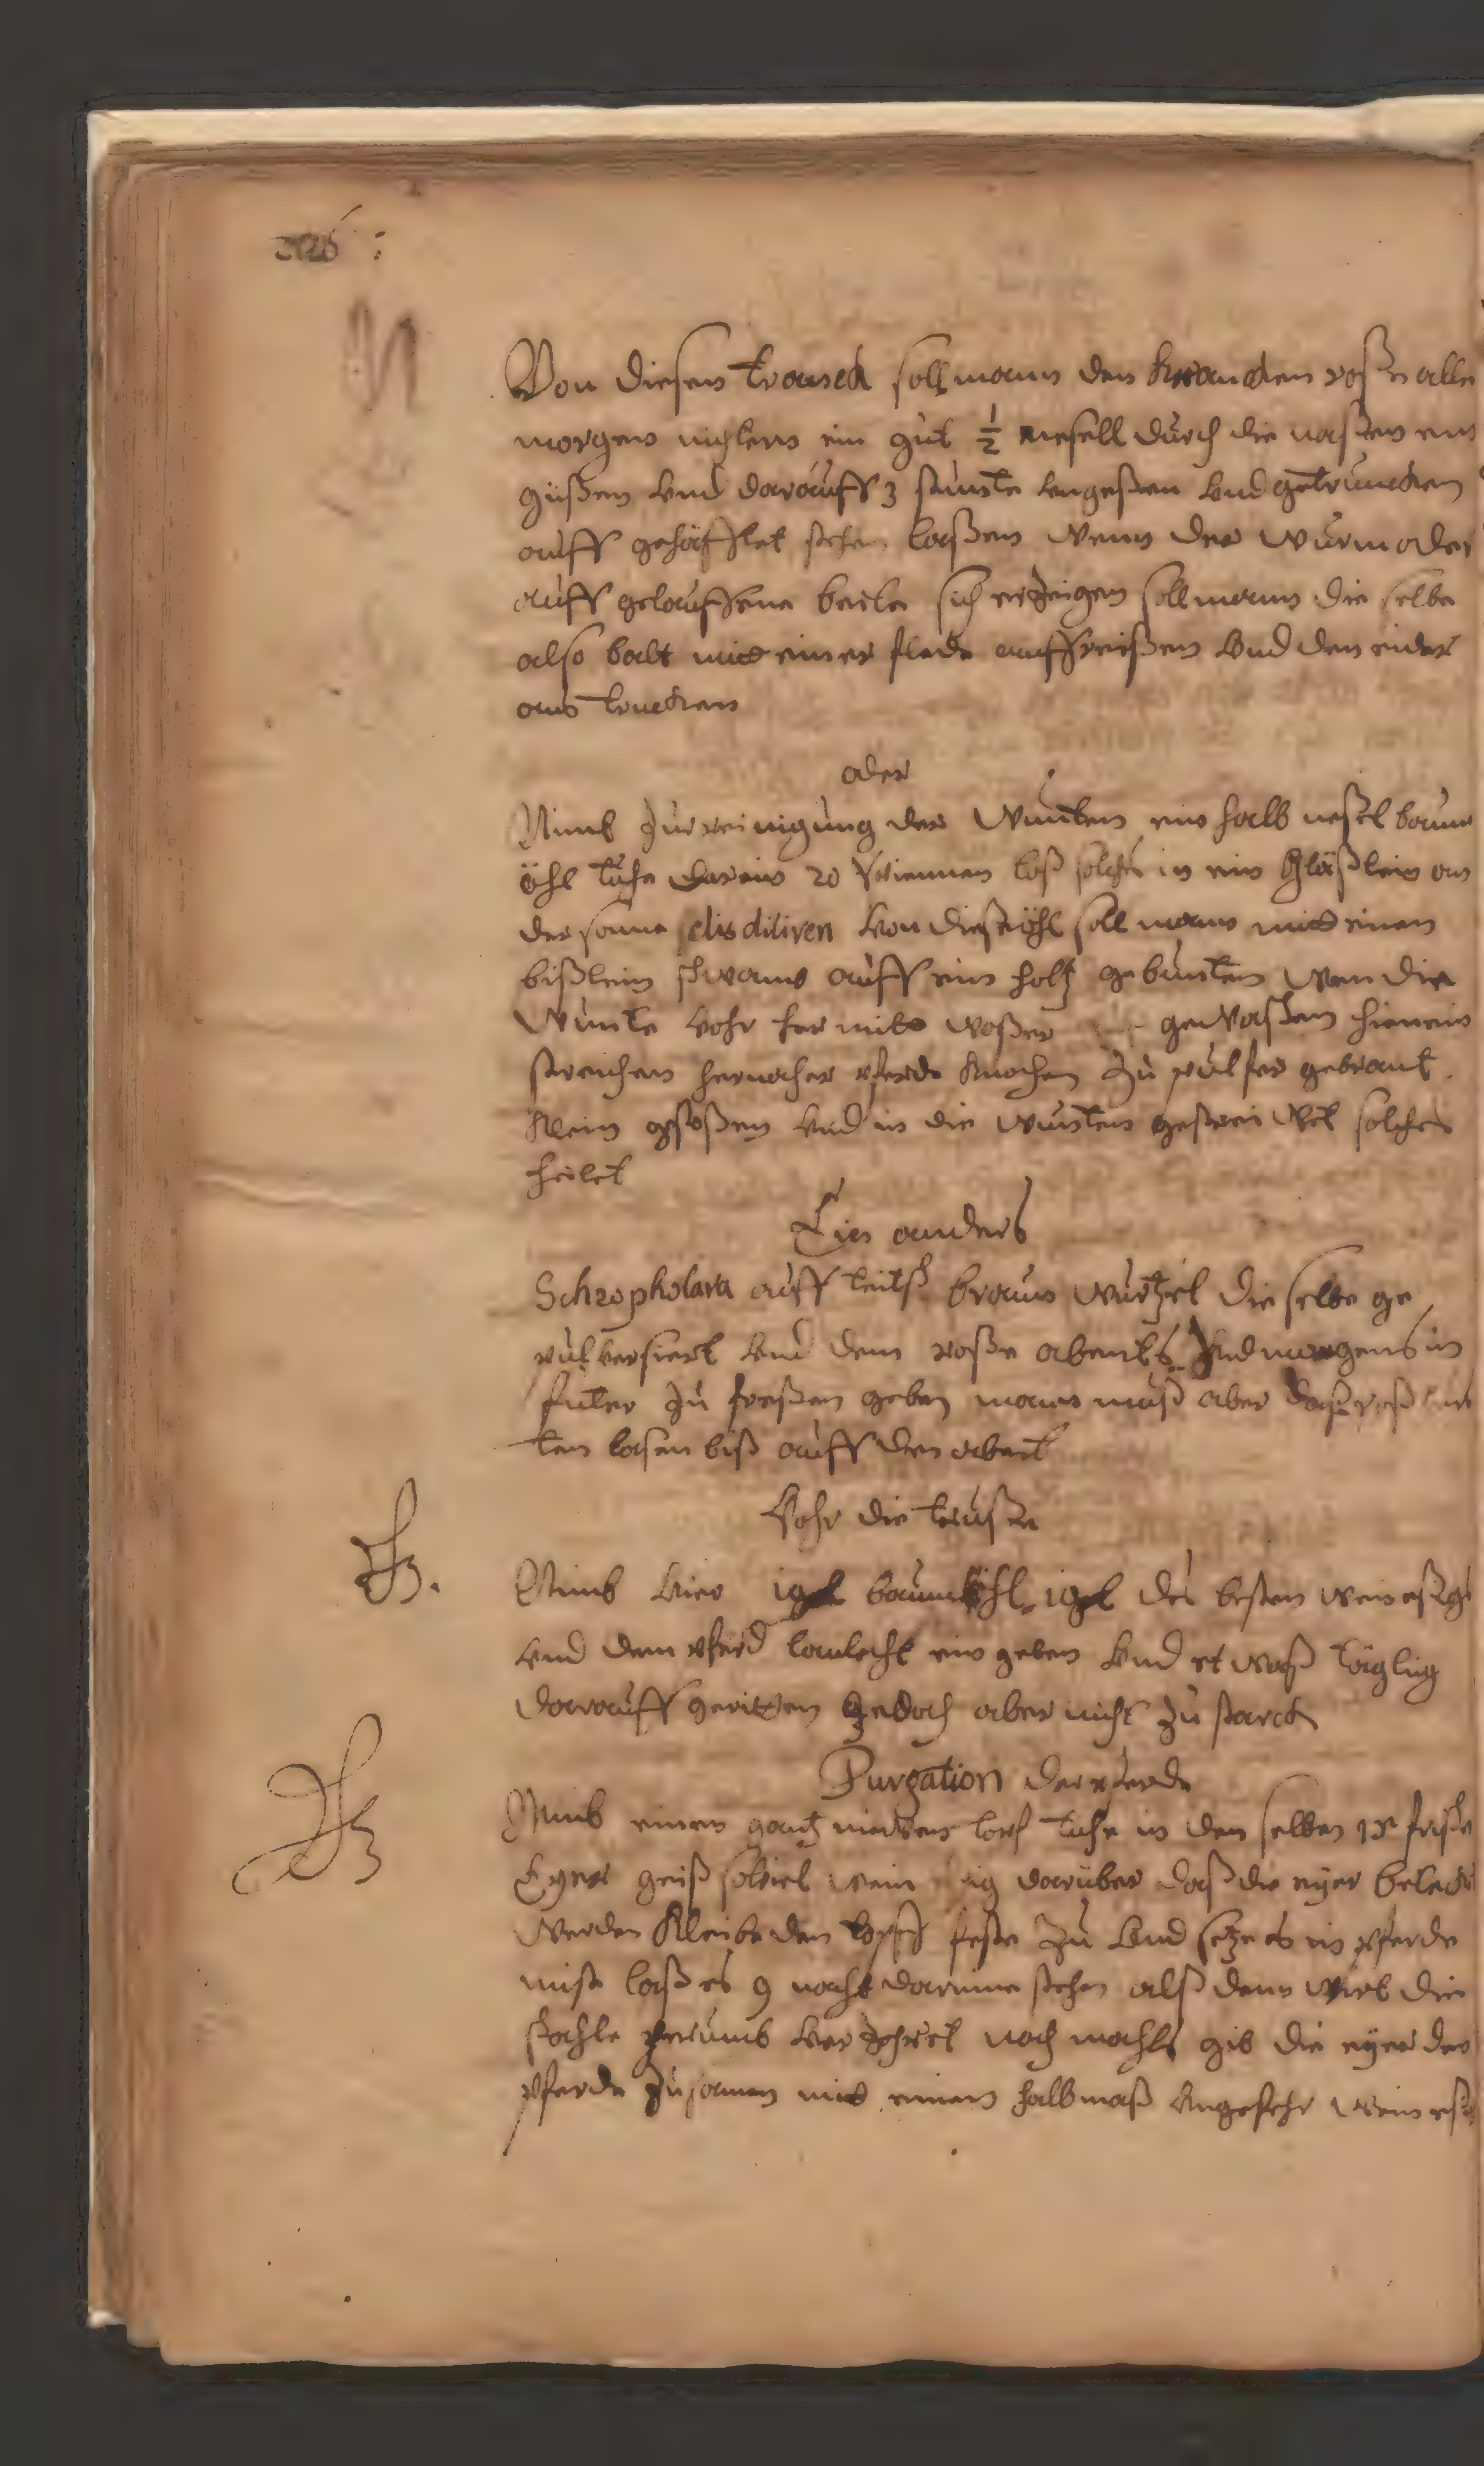 Von diesen tranck soll mann den krancken roße alle
morgen nichtern ein gut ½ nesell durch die naßen ein
güßen vnd darauff 3 stunte vngeßen vnd getruncken
auff gehäfftet stehen laßen wenn der wurm oder
auff gelauffene beile sich erzeigen soll mann die selbe
also balt mitt einer fliede auffreißen vnd den eider
aus trucken
oder
Nimb zur reinigung der wunten ein halb neßel baum
öhl tuhe darein 20 laß solches in ein Gläßlein an
der sonne disdiliren von diesen öhl soll mann mitt einem
bißlein schwam auff ein holtz gebunten wen die
wunte vohr her mitt waßer gewaßen hienein
streichen hernacher pferde knochen zu pulfer gebrant
klein gestoßen vnd in die wunten gestreiwet solches
heilet
Ein anders
Schropholara auff teutsch braun wurtzel die selbe ge
pulversiert vnd dem roße abents vnd morgens in
futer zu freßen geben mann muß aber daß roß
ten laßen biß auff den abent
Vohr die trußen
Nimb vier baumöhl des besten wein eßigs
vnd dem pferd laulecht ein geben vnd et waß täglig
darauff geritten jedoch aber nicht zu starck
Purgation der pferde
Nimb einen gantz neiwen topf tuhe in den selben 15 frische
Eyer geiß soviel wein darüber daß die eyer bedeckt
werden kleibe den topff feste zu vnd setze es in pferde
mist laß es 9 nacht darinne stehen alß dann wirt die
schahle herumb verzehret nach mahls gib die eyer den
pferde zusamen mit einem halb maß vngefehr wein eßig